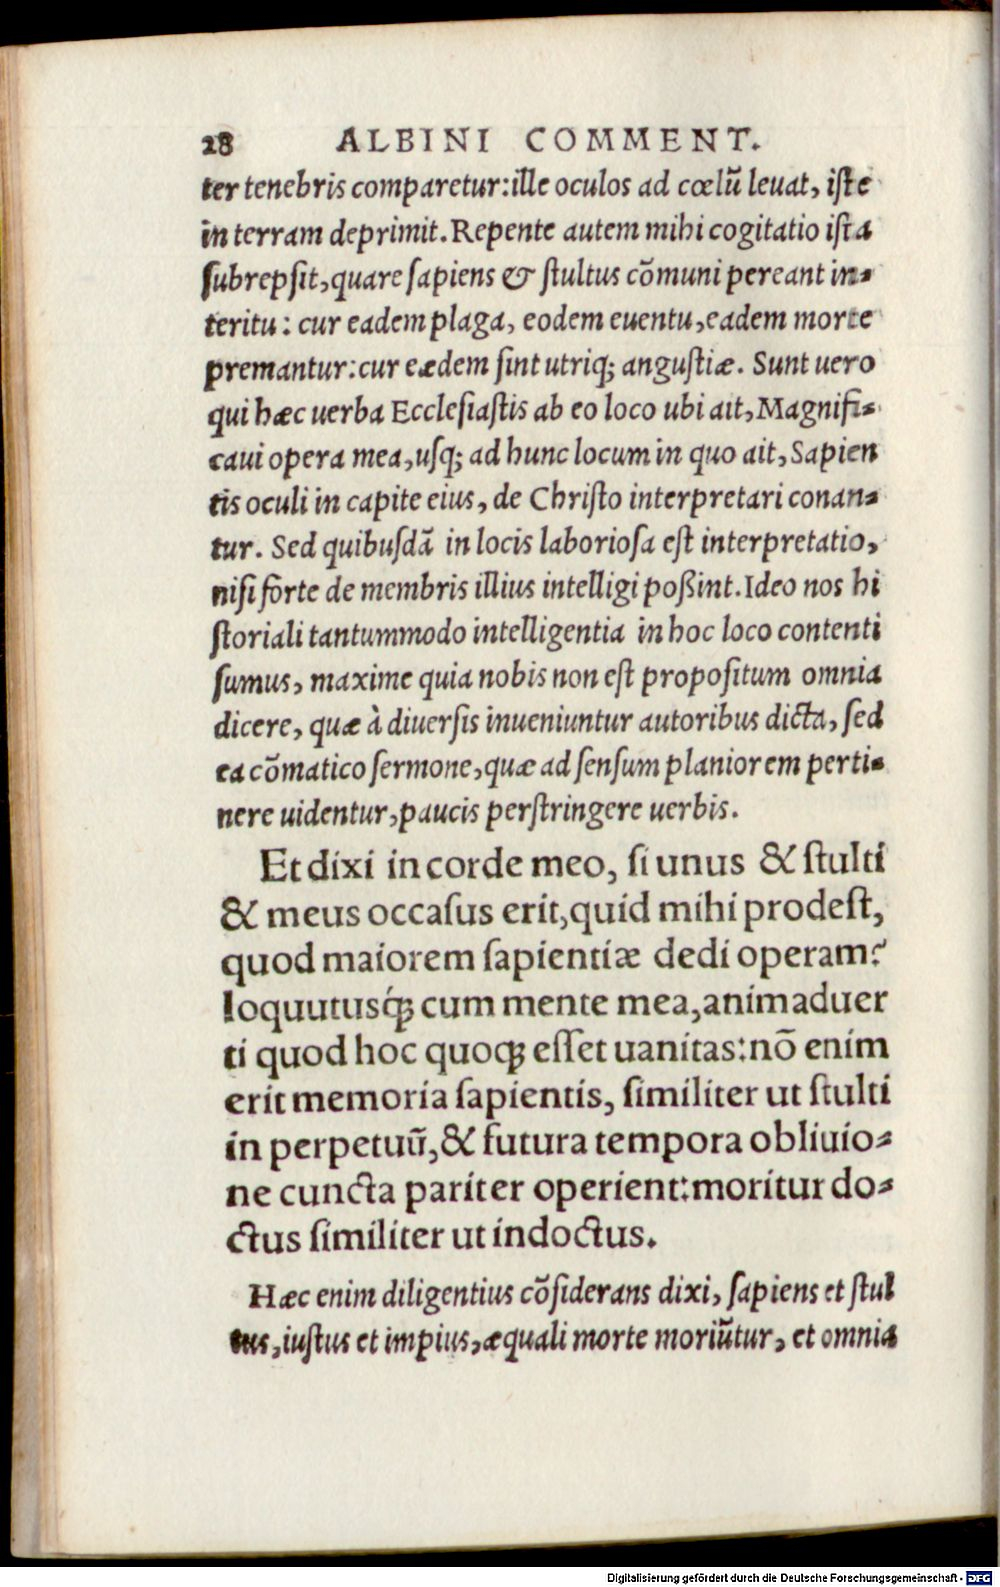 28 ALBINI COMMENT.
ter tenebris comparetur: ille oculos ad cœlū leuat, iste
in terram deprimit. Repente autem mihi cogitatio ista
ſubrepſit, quare ſapiens & ſtultus cōmuni pereant in-
teritu: cur eadem plaga, eodem euentu, eadem morte
premantur: cur eædem ſint utriq; anguſtiæ. Sunt uero
qui hæc uerba Eccleſiaſtis ab eo loco ubi ait, Magnifi-
caui opera mea, uſq; ad hunc locum in quo ait, Sapien
tis oculi in capite eius, de Chriſto interpretari conan-
tur. Sed quibuſdā in locis laborioſa eſt interpretatio,
niſi forte de membris illius intelligi poßint. Ideo nos hi
ſtoriali tantummodo intelligentia in hoc loco contenti
ſumus, maxime quia nobis non eſt propoſitum omnia
dicere, quæ à diuerſis inueniuntur autoribus dicta, ſed
ea cōmatico ſermone, quæ ad ſenſum planiorem perti-
nere uidentur, paucis perſtringere uerbis.
Et dixi in corde meo, ſi unus & ſtulti
& meus occaſus erit, quid mihi prodeſt,
quod maiorem ſapientiæ dedi operam?
loquutusq́; cum mente mea, animaduer
ti quod hoc quoq; eſſet uanitas: nō enim
erit memoria ſapientis, ſimiliter ut ſtulti
in perpetuū, & futura tempora obliuio-
ne cuncta pariter operient: moritur do-
ctus ſimiliter ut indoctus.
Hæc enim diligentius cōſiderans dixi, ſapiens et ſtul
tus, iuſtus et impius, æquali morte moriūtur, et omnia
Digitalisierung gefördert durch die Deutsche Forschungsgemeinschaft - DFG